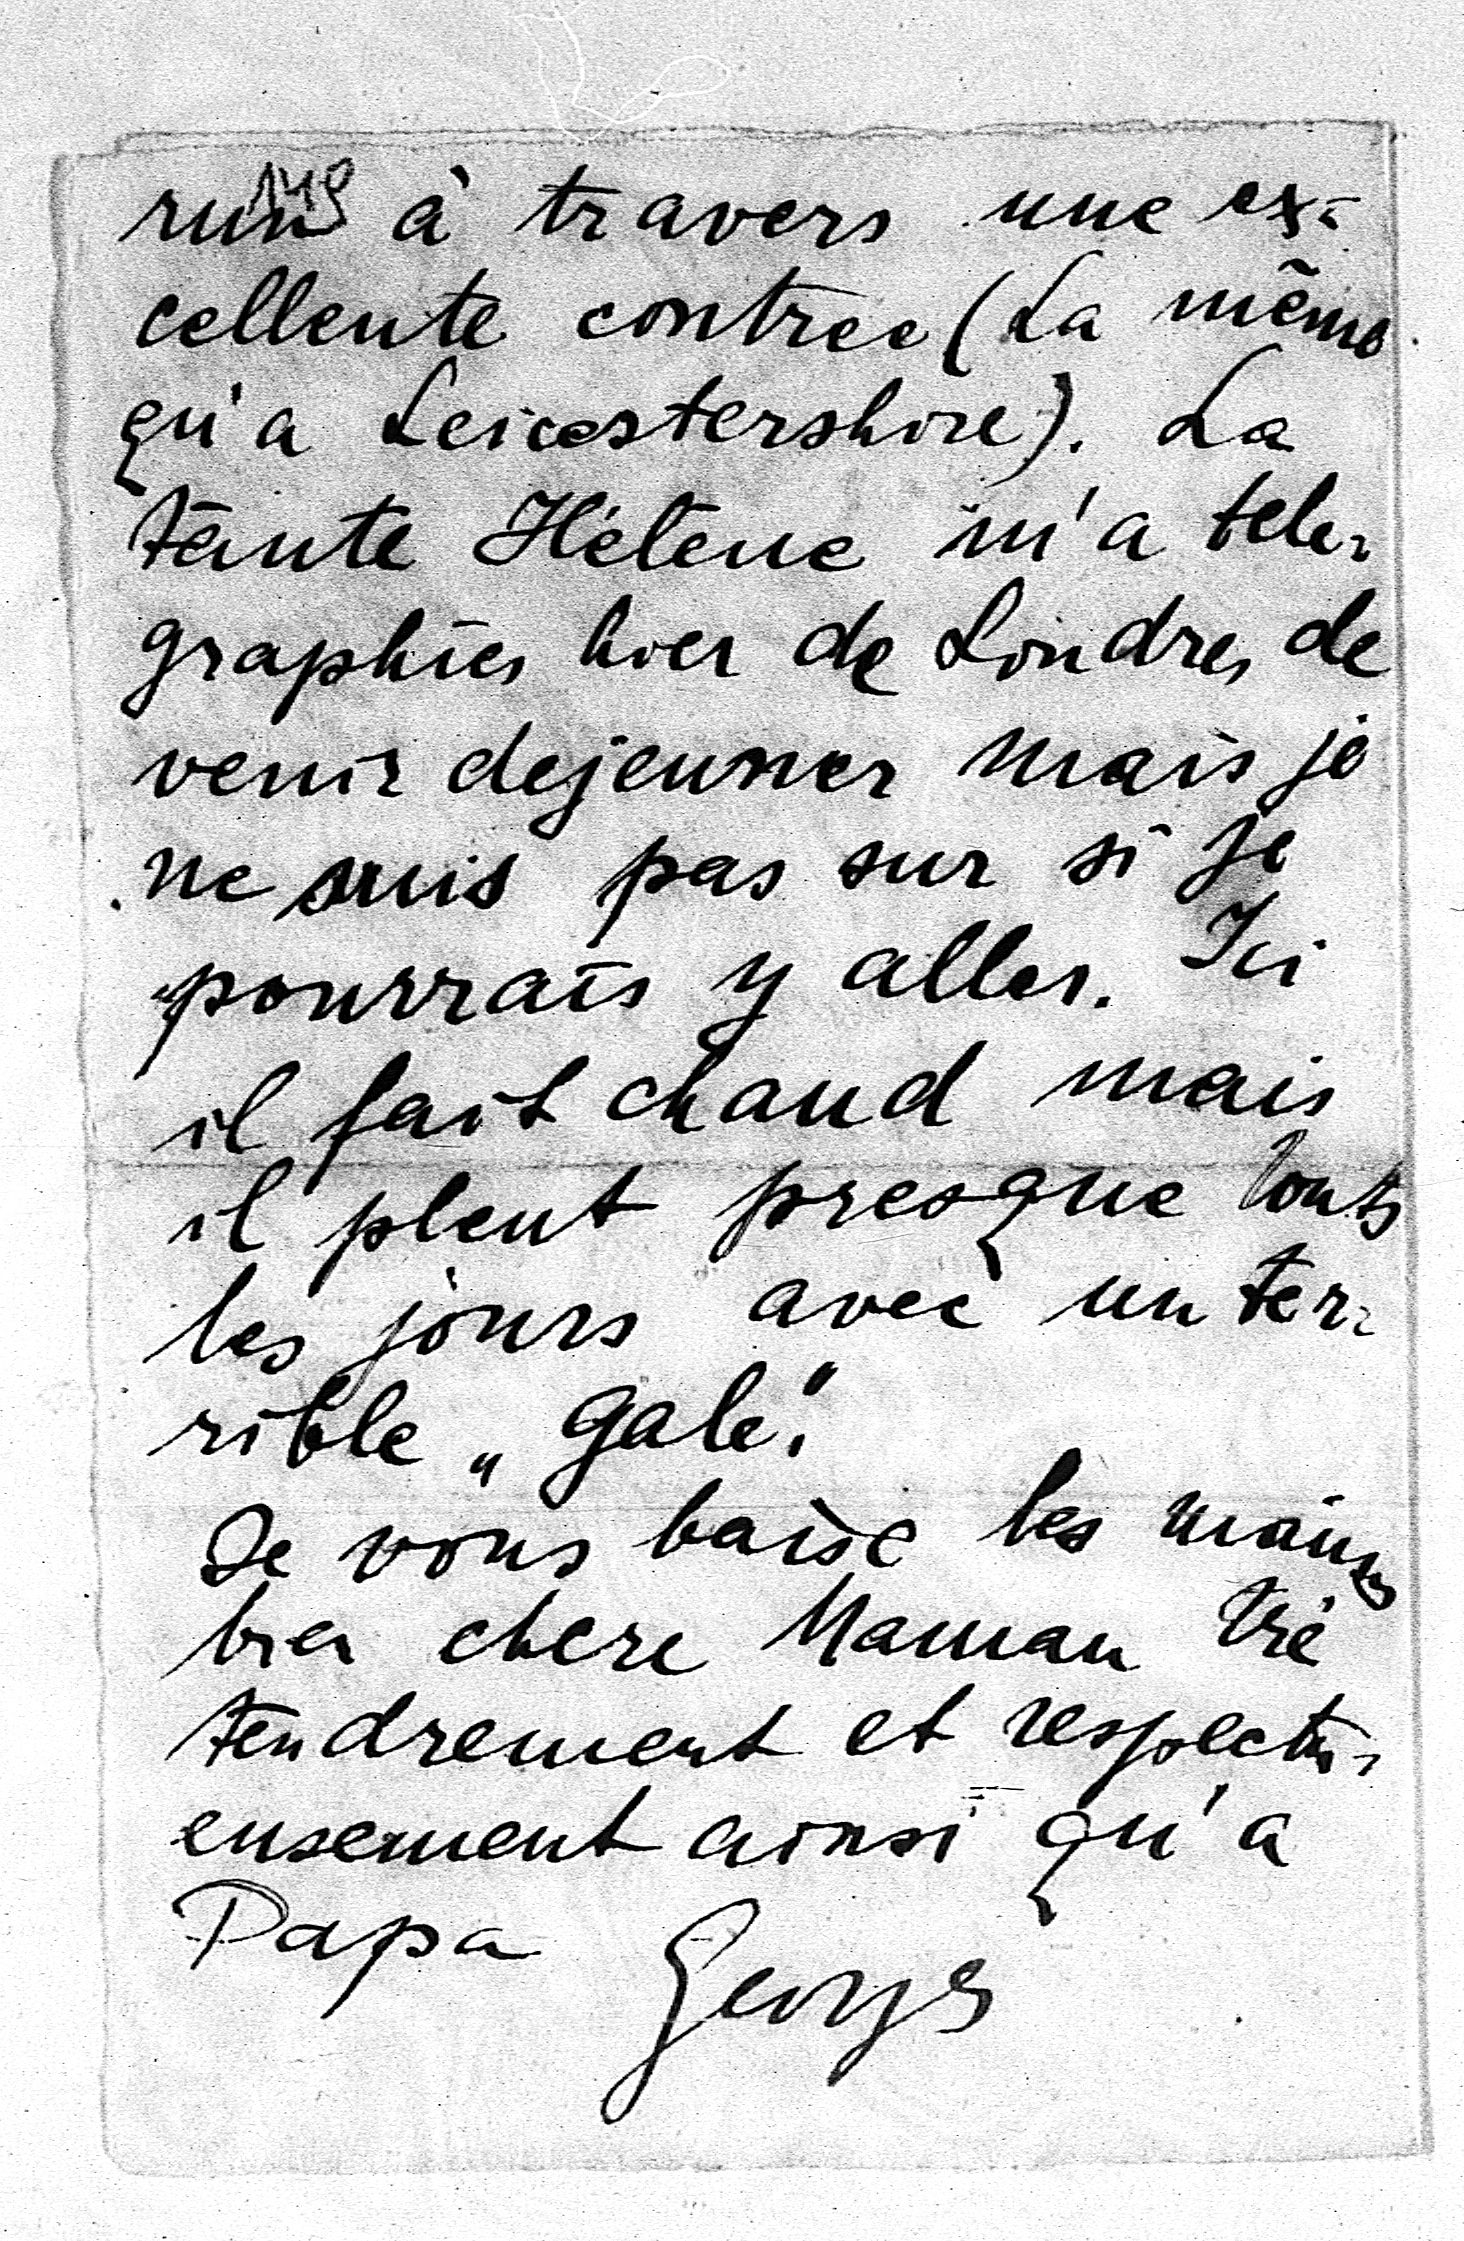 149
run à travers une ex-
cellente contree (La même
qu'a Leicestershire). La
tante Hélène m'a tele-
graphies hier de Londres de
venir dejeuner mais je
ne suis pas sur si je
pourrais y aller. Ici
il fait chaud mais
il pleut presque touts
les jours avec un ter-
rible „gale".
Je vous baise les mains
chere Maman très
tendrement et respectu-
eusement ainsi qu'a
Papa
Georges